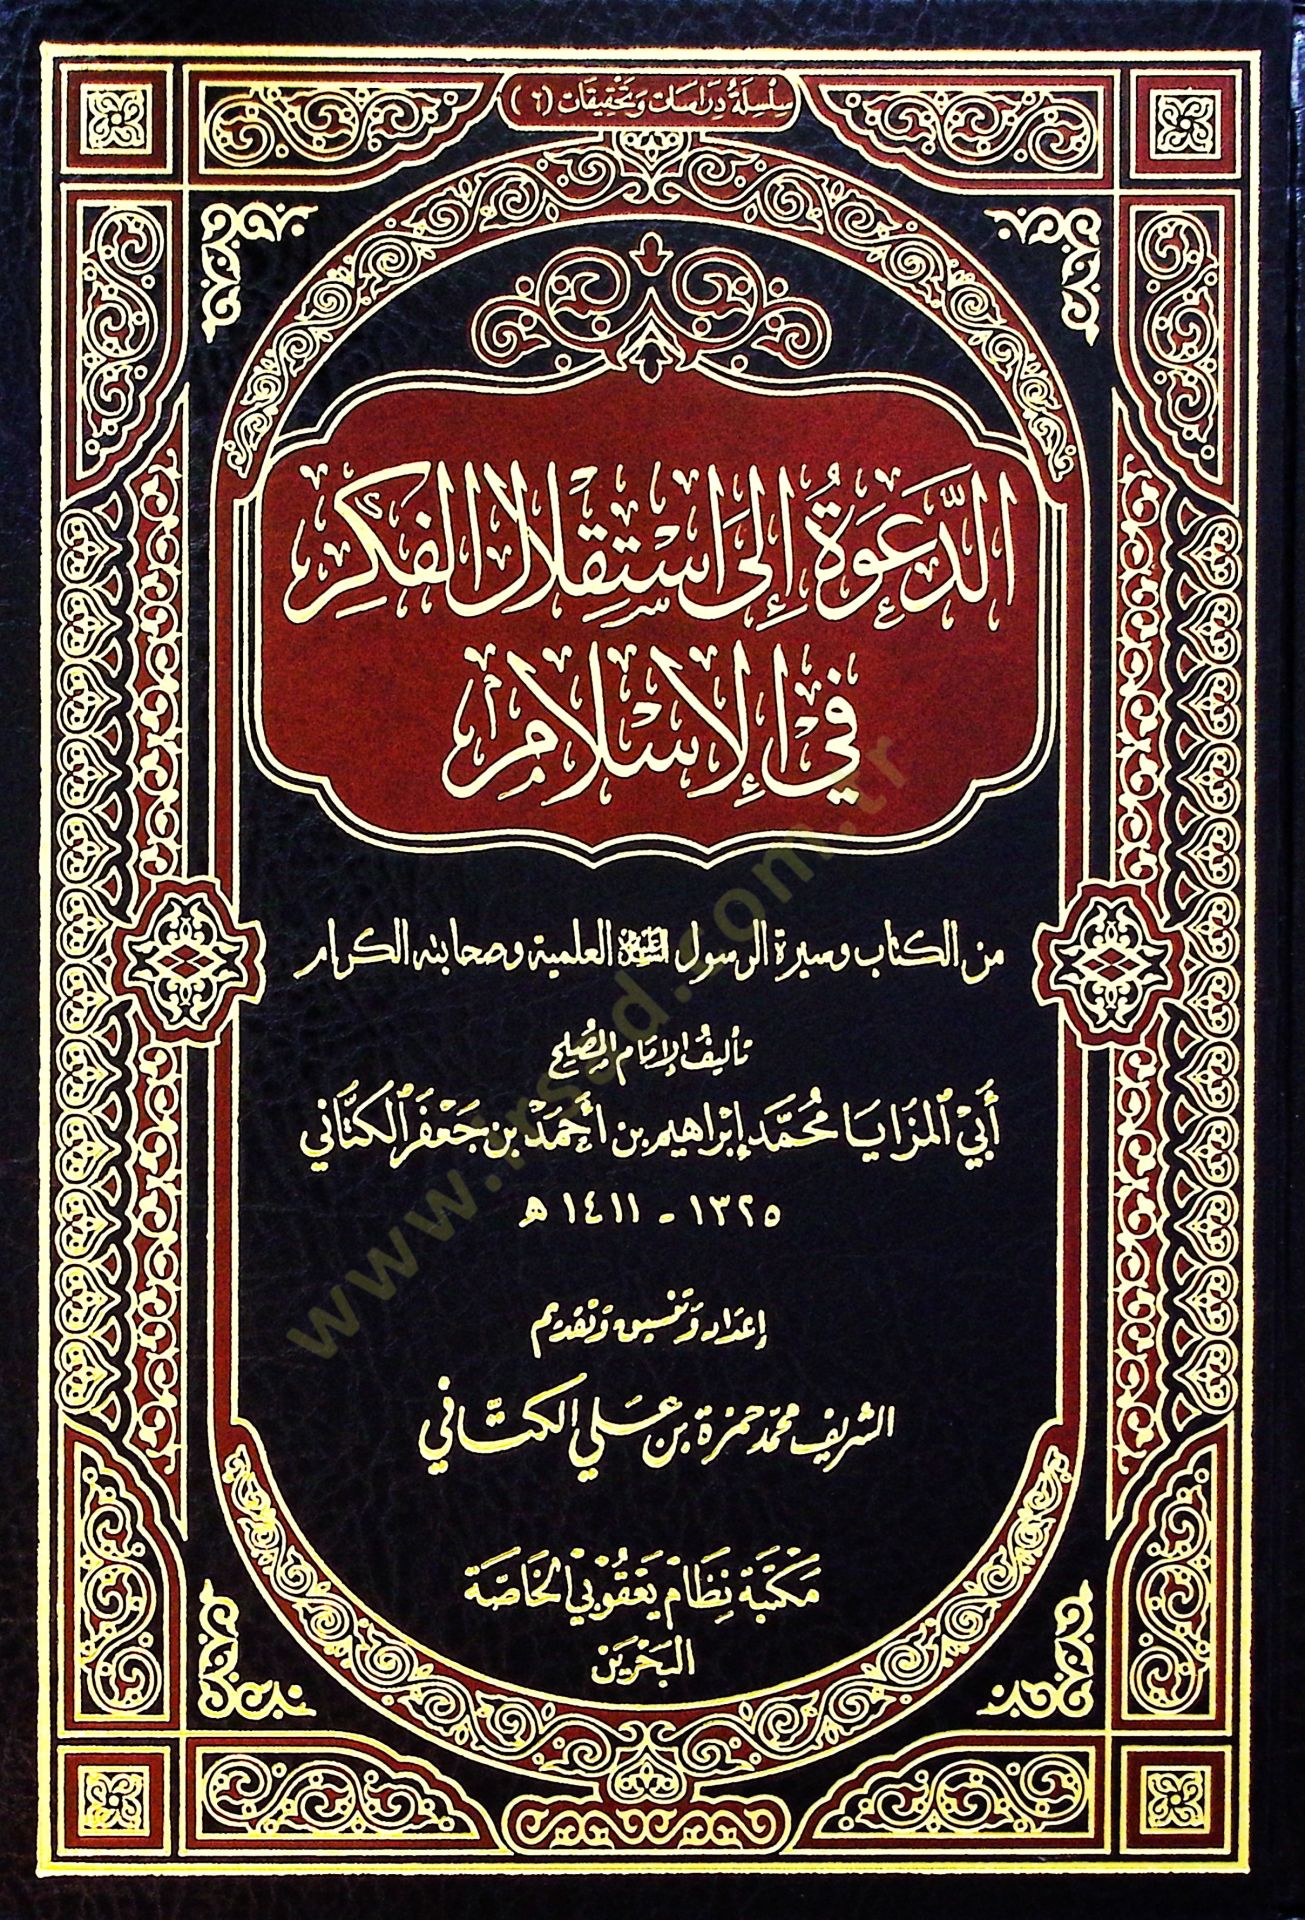 سِلْسِلَةُ دِرَاسَات وَتَحْقِيقَات (٦)
الدَّعْوَةُ إِلَى اسْتِقْلَالِ الفِكْرِ
فِي الإِسْلَامِ
من الكتاب وسيرة الرسول ﷺ العلمية وصحابته الكرام
تأليفُ الإمَام المُصْلِح
أَبِي المَزَايَا مُحَمَّد إِبْرَاهِيم بن أَحْمَدْ بن جَعْفَر الكَتَّانِي
١٣٢٥ - ١٤١١ هـ
إعْدَاد وَتَنْسِيق وَتَقْدِيم
الشريف محمّد حمزة بن عَلي الكتّاني
مَكْتَبَة نِظَام يَعْقُوبِي الخَاصَّة
البَحْرَيْن
www.irsad.com.tr